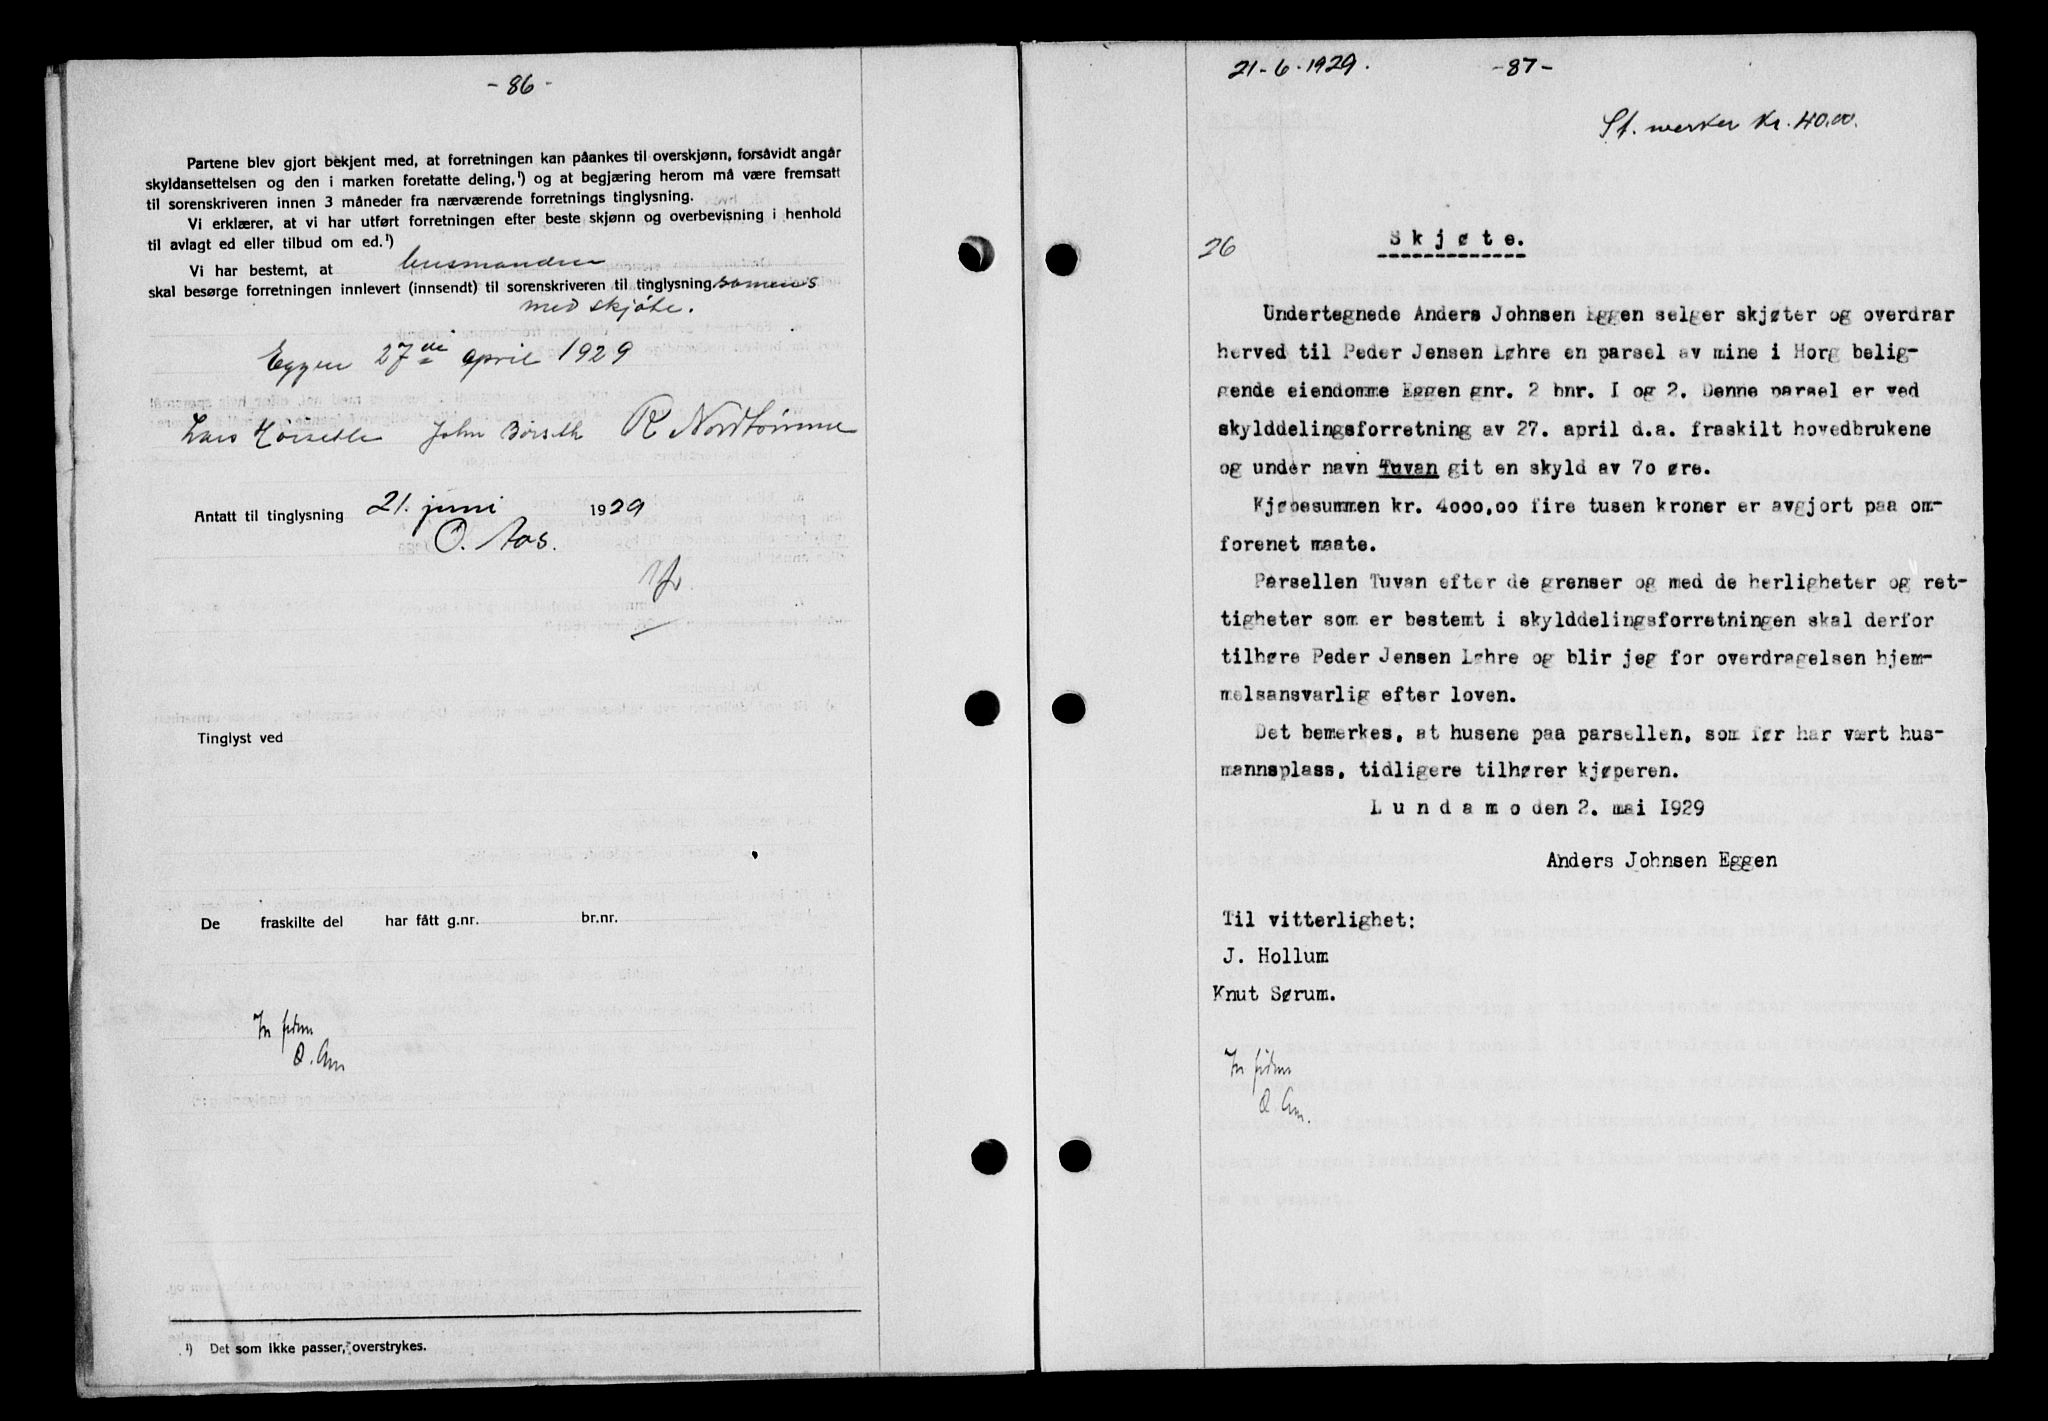 - 86 -
Partene blev gjort bekjent med, at forretningen kan påankes til overskjønn, forsåvidt angår
skyldansettelsen og den i marken foretatte deling,¹) og at begjæring herom må være fremsatt
til sorenskriveren innen 3 måneder fra nærværende forretnings tinglysning.
Vi erklærer, at vi har utført forretningen efter beste skjønn og overbevisning i henhold
til avlagt ed eller tilbud om ed.¹)
Vi har bestemt, at
skal besørge forretningen innlevert (innsendt) til sorenskriveren til tinglysning sammens
med skjøte.
Eggen 27de april 1929
Lars Hørsetle John Børseth R Nordtømme
Antatt til tinglysning 21. juni 1929
O. Aas.
Tinglyst ved
De fraskilte del har fått g.nr. br.nr.
In fidem
¹) Det som ikke passer, overstrykes.
21-6-1929.
-87-
St. merker kr. 40.00.
26
Skjøte.
Undertegnede Anders Johnsen Eggen selger skjøter og overdrar
herved til Peder Jensen Løhre en parsel av mine i Horg belig-
gende eiendomme Eggen gnr. 2 bnr. I og 2. Denne parsel er ved
skylddelingsforretning av 27. april d.a. fraskilt hovedbrukene
og under navn Tuvan git en skyld av 70 øre.
Kjøbesummen kr. 4000,00 fire tusen kroner er avgjort paa om-
forenet maate.
Parsellen Tuvan efter de grenser og med de herligheter og ret-
tigheter som er bestemt i skylddelingsforretningen skal derfor
tilhøre Peder Jensen Løhre og blir jeg for overdragelsen hjem-
melsansvarlig efter loven.
Det bemerkes, at husene paa parsellen, som før har vært hus-
mannsplass, tidligere tilhører kjøperen.
Lundamo den 2. mai 1929
Anders Johnsen Eggen
Til vitterlighet:
J. Hollum
Knut Sørum.
In fidem